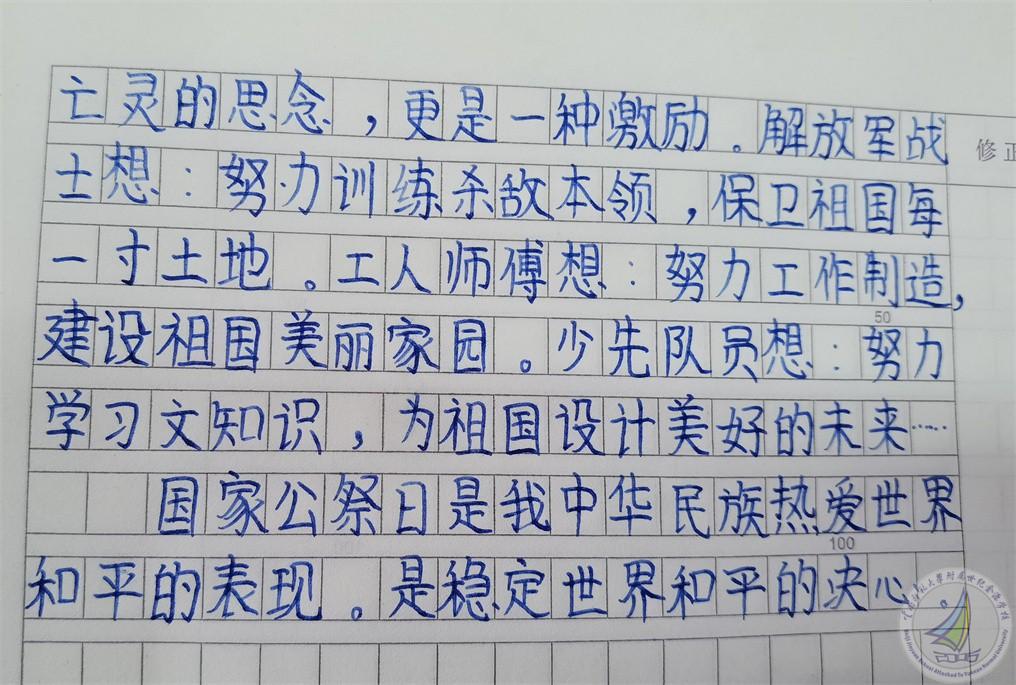 亡灵的思念，更是一种激励。解放军战
修正
士想：努力训练杀敌本领，保卫祖国每
一寸土地。工人师傅想：努力工作制造，
50
建设祖国美丽家园。少先队员想：努力
学习文知识，为祖国设计美好的未来……
国家公祭日是我中华民族热爱世界
100
和平的表现。是稳定世界和平的决心